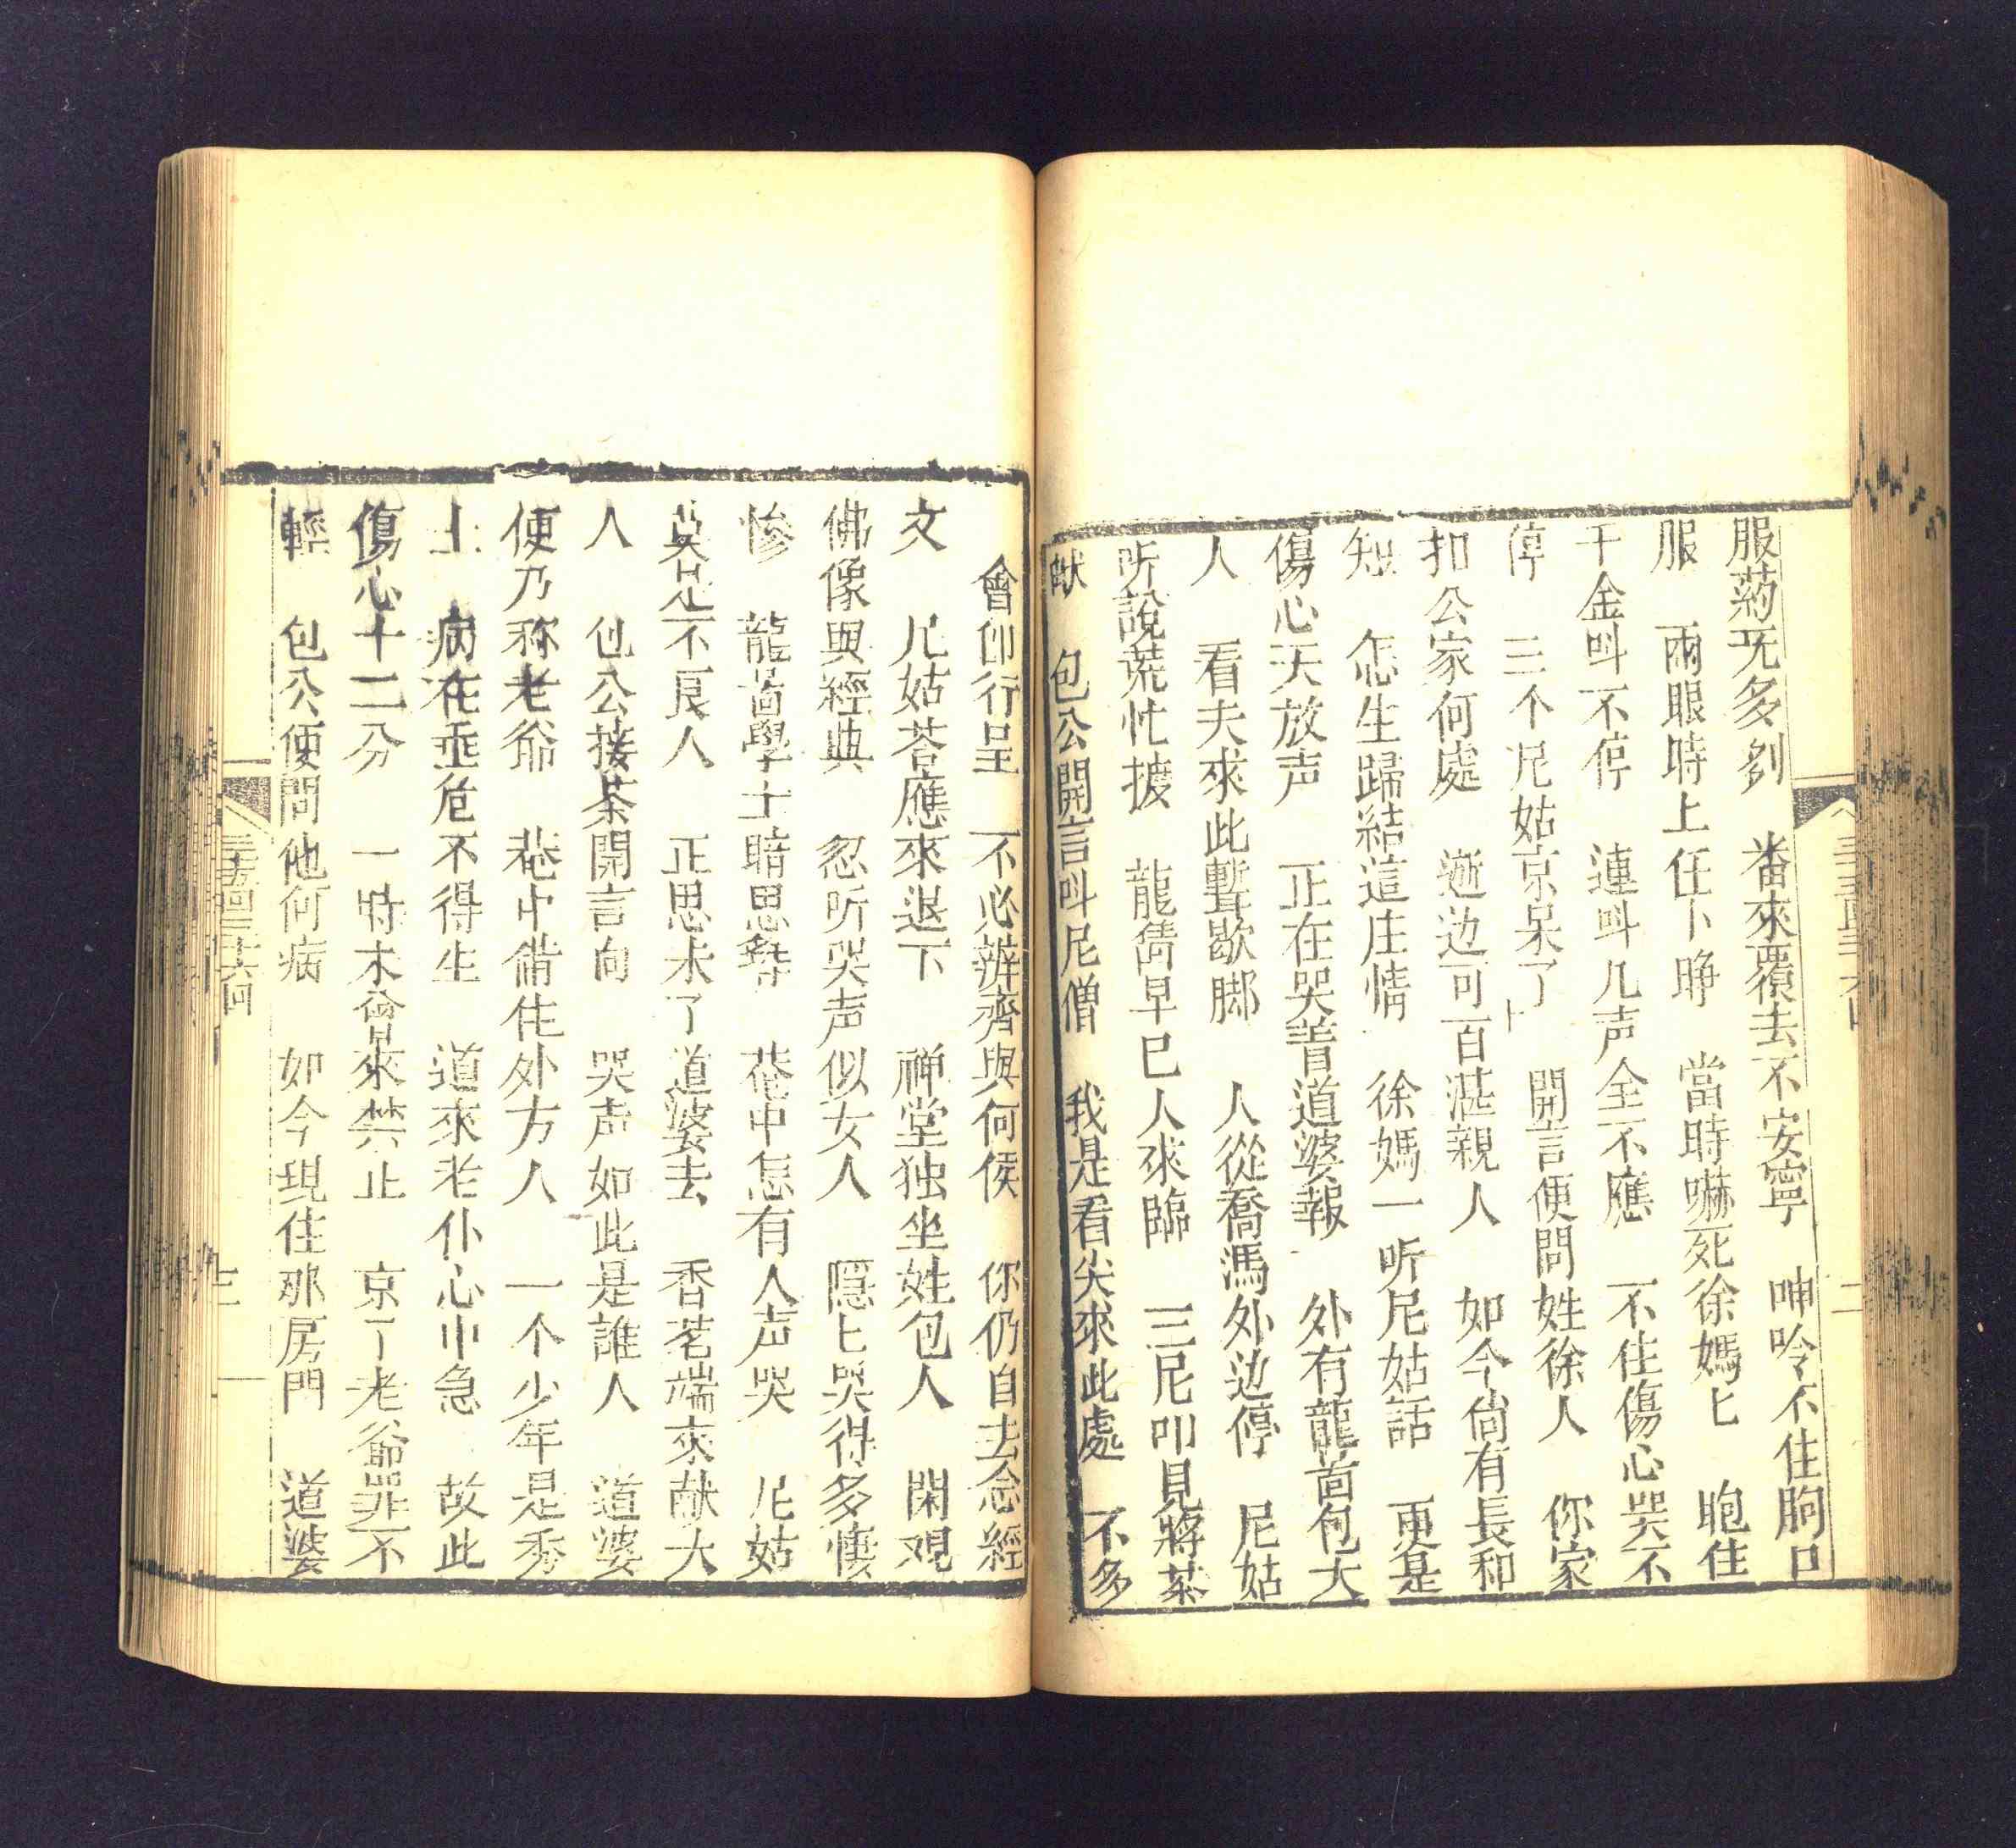 服药无多刻 番來覆去不安寧 呻吟不住胸口
服 兩眼時上任卜睁 當時嚇死徐媽匕 抱住
千金呌不停 連呌几声全不應 不住傷心哭不
停 三个尼姑京呆了 開言便問姓徐人 你家
扣公家何處 逝边可百湛親人 如今倘有長和
短 怎生歸結這庄情 徐媽一听尼姑話 更是
傷心天放声 正在哭着道婆報 外有龍啚包大
人 看夫來此暫歇脚 人從喬馮外边停 尼姑
听說荒忙接 龍啚早已人來臨 三尼叩見將茶
献 包公開言呌尼僧 我是看尖來此處 不多
會即行呈 不必辦齊與何侯 你仍自去念經
文 尼姑荅應來退下 禅堂独坐姓包人 閑观
佛像與經典 忽听哭声似女人 隠匕哭得多悽
惨 龍啚學士暗思尋 菴中怎有人声哭 尼姑
莫足不良人 正思未了道婆去 香茗端來献大
人 包公接茶開言向 哭声如此是誰人 道婆
便乃称老爺 菴中俻住外方人 一个少年是秀
士 病在垂危不得生 道來老仆心中急 故此
傷心十二分 一時未曾來禁止 京了老爺罪不
輕 包公便問他何病 如今現住那房門 道婆
三
二